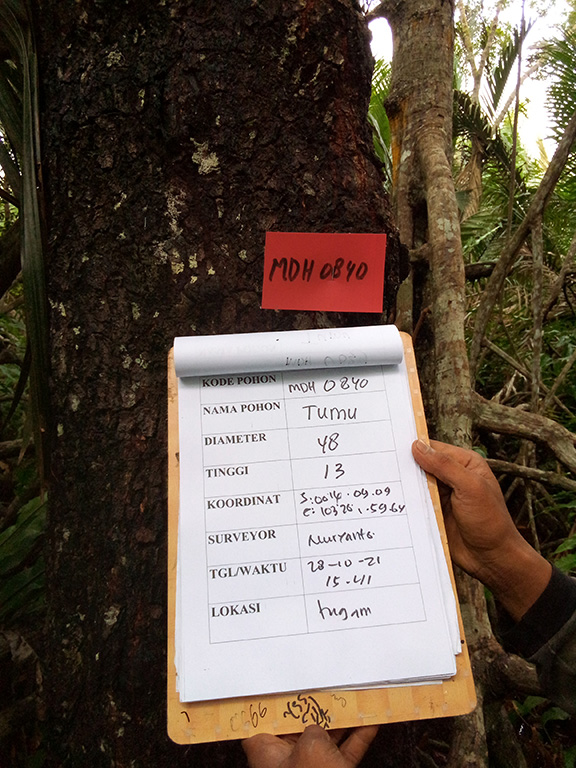 MDH 0840
KODE POHON MDH 0840
NAMA POHON Tumu
DIAMETER 48
TINGGI 13
KOORDINAT S:0014.09.09
E:
SURVEYOR Nuryanto
TGL/WAKTU 28-10-21
15.41
LOKASI